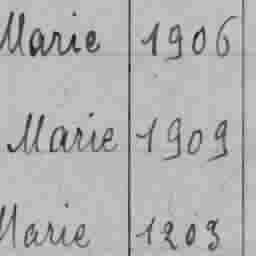 Marie 1906
Marie 1909
Marie 1903